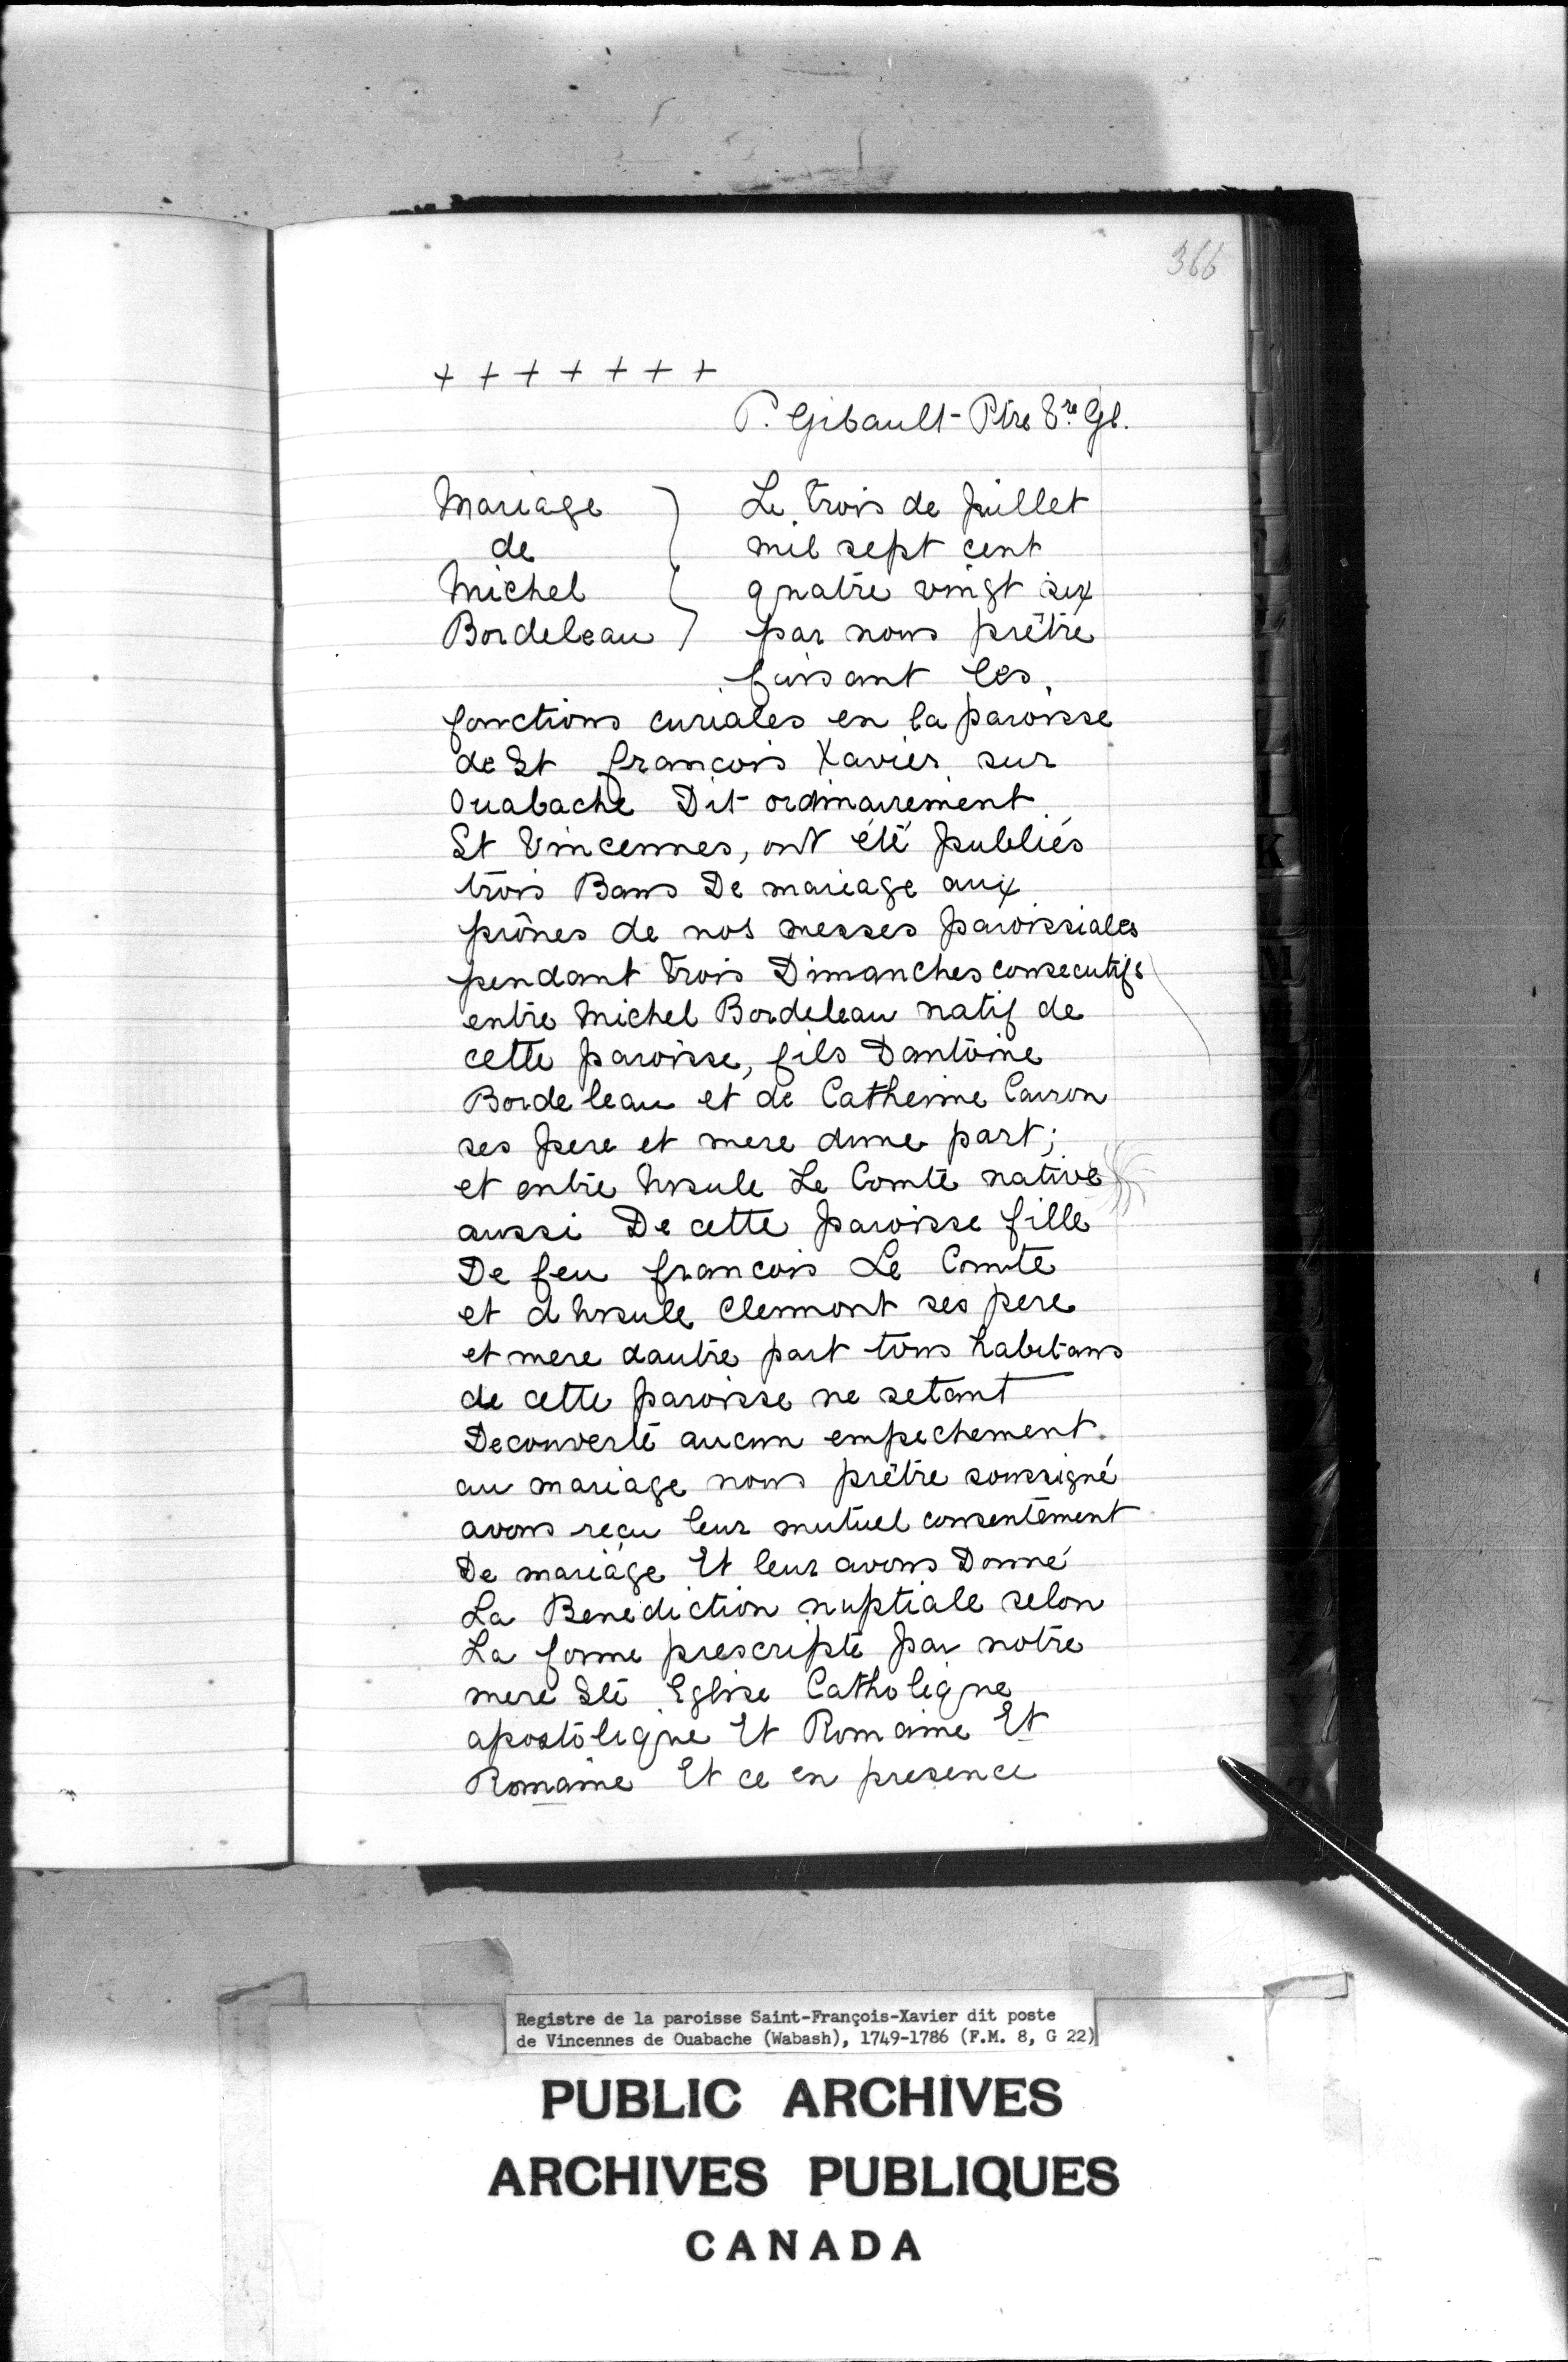 366
+ + + + + + +
P. Gibault - Ptre Vre Gl.
Mariage
de
Michel
Bordeleau
Le trois de Juillet
mil sept cent
quatre vingt six
par nous prêtre
faisant les
fonctions curiales en la paroisse
de St françois Xavier sur
Ouabache Dit ordinairement
St Vincennes, ont été publiés
trois Bans De mariage aux
prônes de nos messes paroissiales
pendant trois Dimanches consecutifs
entre Michel Bordeleau natif de
cette paroisse, fils Dantoine
Bordeleau et de Catherine Caron
ses pere et mere dune part;
et entre Ursule Le Comte native
aussi De cette paroisse fille
De feu francois Le Comte
et dUrsule Clermont ses pere
et mere dautre part tous habitans
de cette paroisse ne setant
Decouverte aucun empechement
au mariage nous prêtre soussigné
avons reçu leur mutuel consentement
De mariage Et leur avons Donné
La Benediction nuptiale selon
La forme prescripte par notre
mere Ste Eglise Catholique
apostolique Et Romaine Et
Romaine Et ce en presence
Registre de la paroisse Saint-François-Xavier dit poste
de Vincennes de Ouabache (Wabash), 1749-1786 (F.M. 8, G 22)
PUBLIC ARCHIVES
ARCHIVES PUBLIQUES
CANADA
K
M